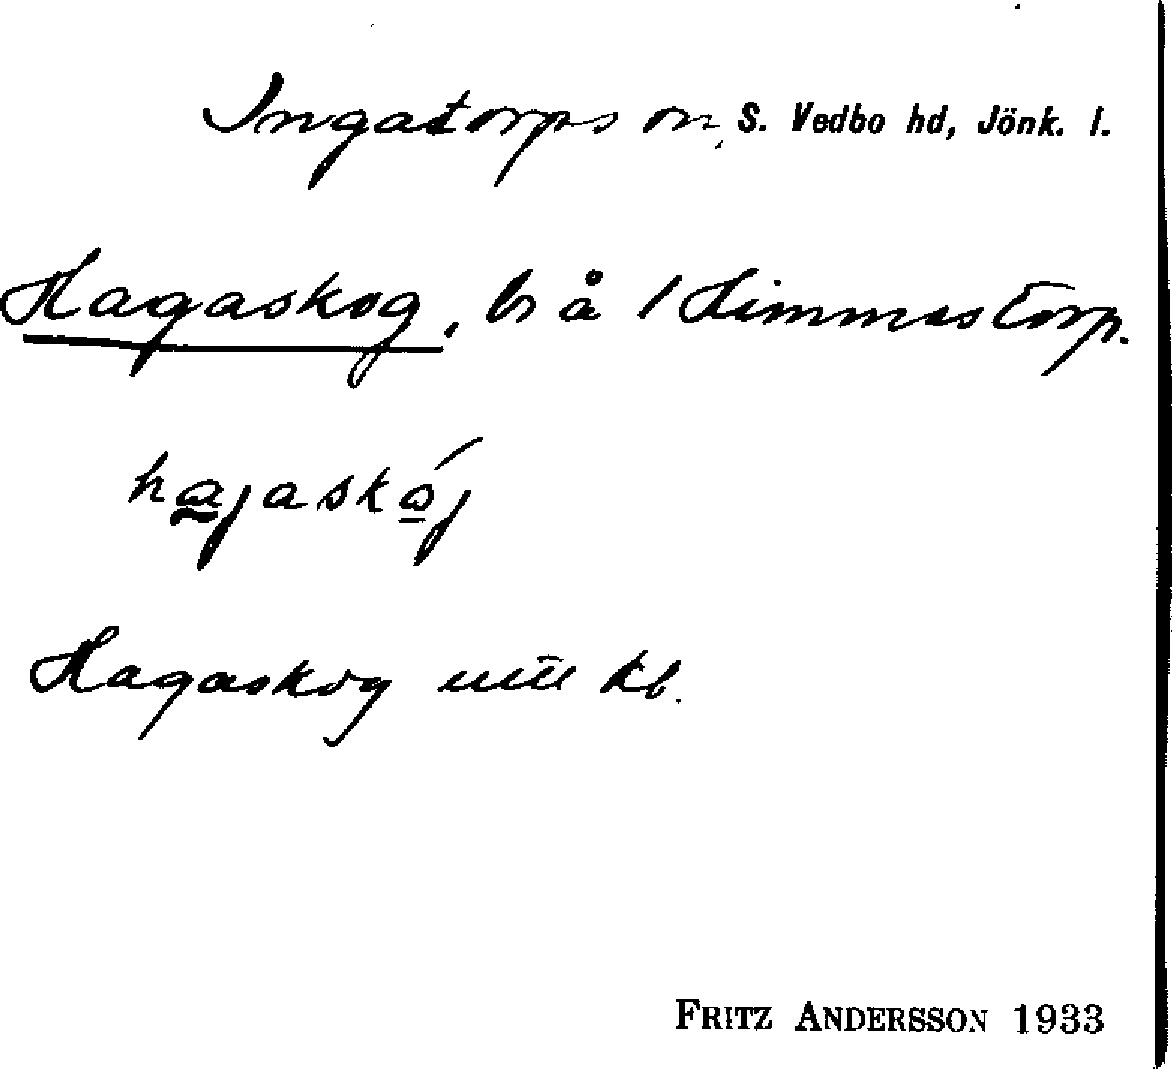 Ingatorps sn, S. Vedbo hd, Jönk. l.
Hagaskog, br å 1 Himmestorp.
hajaskoj
Hagaskog kb.
FRITZ ANDERSSON 1933